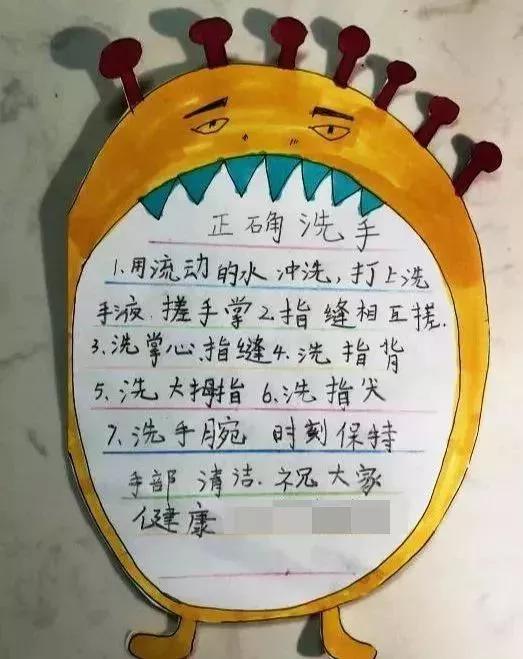 正确洗手
1.用流动的水冲洗,打上洗
手液.搓手掌2.指缝相互搓.
3.洗掌心、指缝4.洗指背
5.洗大拇指6.洗指尖
7.洗手腕 时刻保持
手部清洁.祝大家
健康